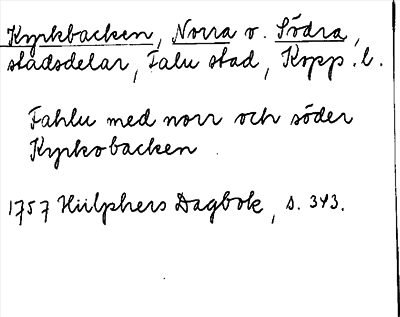 Kyrkbacken, Norra o. Södra,
stadsdelar, Falu stad, Kopp. l.
Fahlu med norr och söder
Kyrkobacken
1757 Hülphers Dagbok, s. 343.